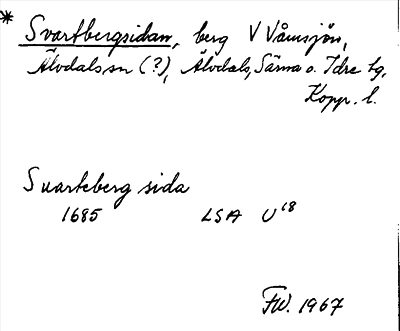 * Svartbergsidan, berg V Våmsjön,
Älvdals sn (?), Älvdals, Särna o. Idre tg,
Kopp. l.
Suarteberg sida
1685 LSA U18
FW. 1967